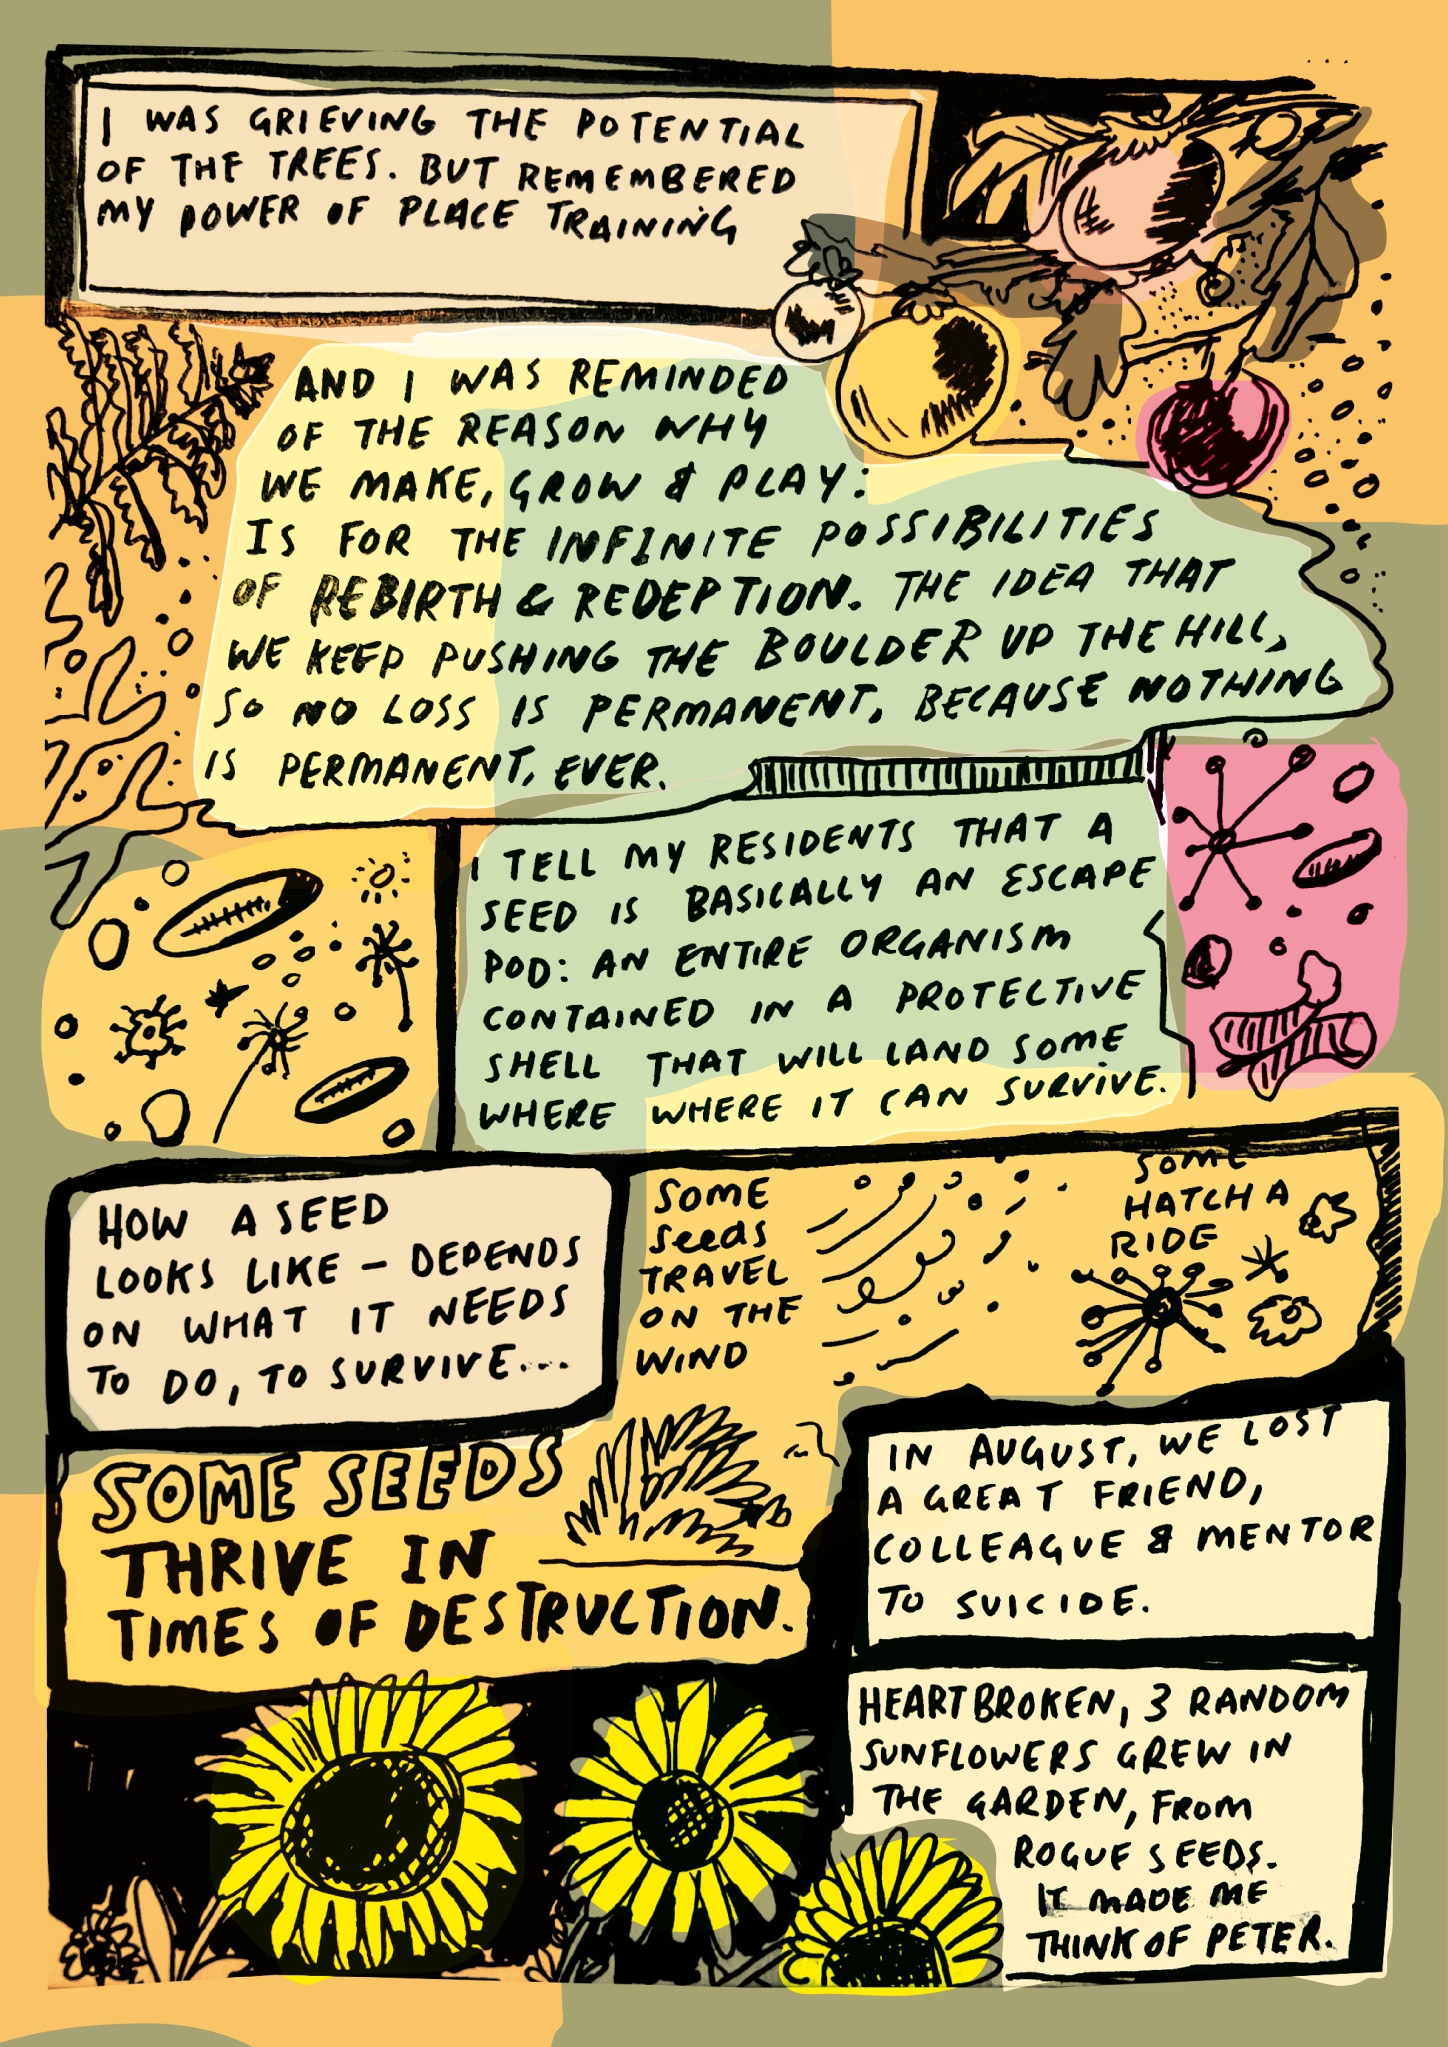 I WAS GRIEVING THE POTENTIAL
OF THE TREES. BUT REMEMBERED
MY POWER OF PLACE TRAINING
AND I WAS REMINDED
OF THE REASON WHY
WE MAKE, GROW & PLAY:
IS FOR THE INFINITE POSSIBILITIES
OF REBIRTH & REDEPTION. THE IDEA THAT
WE KEEP PUSHING THE BOULDER UP THE HILL,
SO NO LOSS IS PERMANENT, BECAUSE NOTHING
IS PERMANENT, EVER.
I TELL MY RESIDENTS THAT A
SEED IS BASICALLY AN ESCAPE
POD: AN ENTIRE ORGANISM
CONTAINED IN A PROTECTIVE
SHELL THAT WILL LAND SOME
WHERE WHERE IT CAN SURVIVE.
HOW A SEED
LOOKS LIKE - DEPENDS
ON WHAT IT NEEDS
TO DO, TO SURVIVE...
SOME
SeedS
TRAVEL
ON THE
WIND
SOME
HATCH A
RIDE
SOME SEEDS
THRIVE IN
TIMES OF DESTRUCTION.
IN AUGUST, WE LOST
A GREAT FRIEND,
COLLEAGUE & MENTOR
TO SUICIDE.
HEARTBROKEN, 3 RANDOM
SUNFLOWERS GREW IN
THE GARDEN, FROM
ROGUE SEEDS.
IT MADE ME
THINK OF PETER.